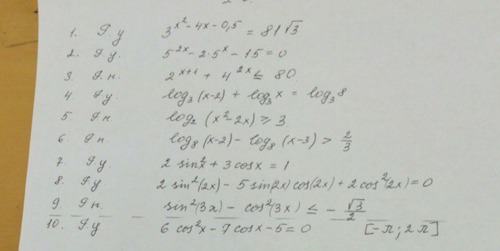 1. Р.у 3^(x²-4x-0,5) = 81√3
2. Р.у. 5^(2x) - 2·5^x - 15 = 0
3. Р.н. 2^(x+1) + 4^(2x) ≤ 80
4. Р.у. log₃(x-2) + log₃x = log₃8
5. Р.н log₂(x²-2x) ≥ 3
6. Р.н log₈(x-2) - log₈(x-3) > 2/3
7. Р.у 2 sin²x + 3 cosx = 1
8. Р.у 2 sin²(2x) - 5 sin(2x) cos(2x) + 2 cos²(2x) = 0
9. Р.н. sin²(3x) - cos²(3x) ≤ - √3/2
10. Р.у 6 cos²x - 7 cosx - 5 = 0 [-π; 2π]